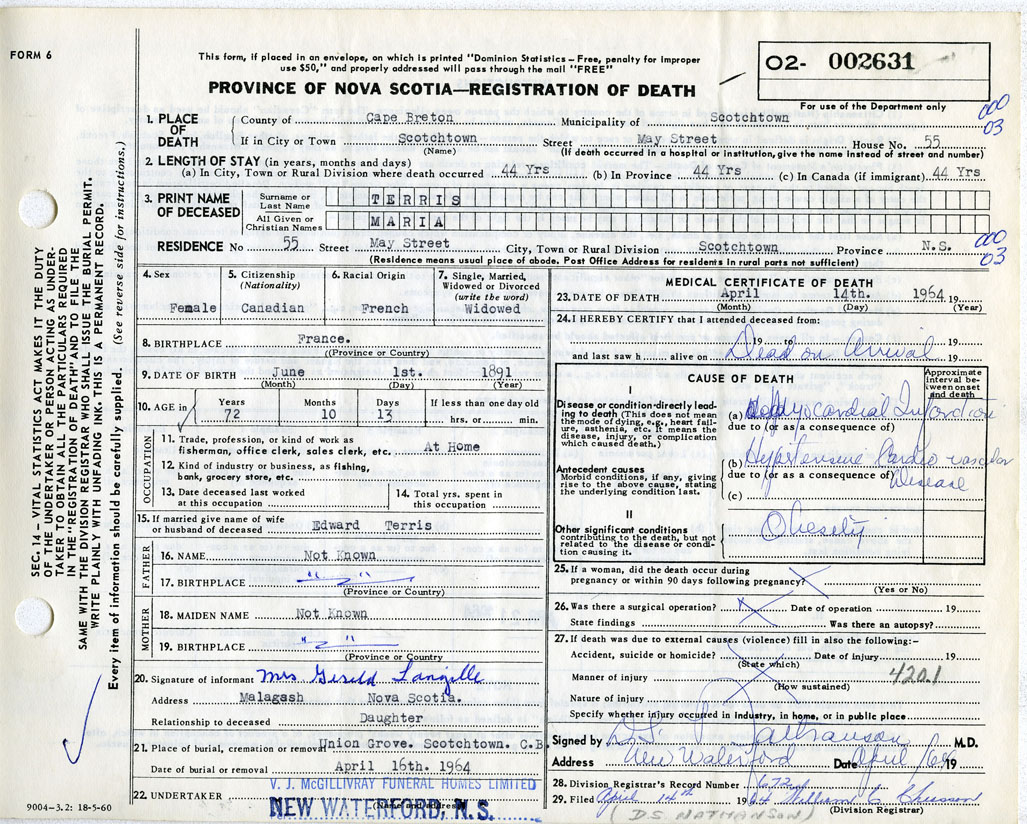 FORM 6
This form, if placed in an envelope, on which is printed "Dominion Statistics – Free, penalty for improper
use $50," and properly addressed will pass through the mail "FREE"
PROVINCE OF NOVA SCOTIA—REGISTRATION OF DEATH
O2- 002631
For use of the Department only
000
03
1. PLACE OF DEATH
County of Cape Breton Municipality of Scotchtown
If in City or Town Scotchtown Street May Street House No. 55
(Name) (If death occurred in a hospital or institution, give the name instead of street and number)
2. LENGTH OF STAY (in years, months and days)
(a) In City, Town or Rural Division where death occurred 44 Yrs (b) In Province 44 Yrs (c) In Canada (if immigrant) 44 Yrs
3. PRINT NAME OF DECEASED
Surname or Last Name TERRIS
All Given or Christian Names MARIA
RESIDENCE No 55 Street May Street City, Town or Rural Division Scotchtown Province N.S.
(Residence means usual place of abode. Post Office Address for residents in rural parts not sufficient)
000
03
4. Sex
Female
5. Citizenship
(Nationality)
Canadian
6. Racial Origin
French
7. Single, Married,
Widowed or Divorced
(write the word)
Widowed
8. BIRTHPLACE France.
(Province or Country)
9. DATE OF BIRTH June 1st. 1891
(Month) (Day) (Year)
10. AGE in
Years Months Days If less than one day old
72 10 13 hrs. or min.
OCCUPATION
11. Trade, profession, or kind of work as
fisherman, office clerk, sales clerk, etc. At Home
12. Kind of industry or business, as fishing,
bank, grocery store, etc.
13. Date deceased last worked
at this occupation
14. Total yrs. spent in
this occupation
15. If married give name of wife
or husband of deceased Edward Terris
FATHER
16. NAME Not Known
17. BIRTHPLACE " "
(Province or Country)
MOTHER
18. MAIDEN NAME Not Known
19. BIRTHPLACE " "
(Province or Country
20. Signature of informant Mrs Gerald Langille
Address Malagash Nova Scotia.
Relationship to deceased Daughter
21. Place of burial, cremation or removal Union Grove. Scotchtown. C.B.
Date of burial or removal April 16th. 1964
22. UNDERTAKER
V. J. McGILLIVRAY FUNERAL HOMES LIMITED
(Name and address)
NEW WATERFORD, N.S.
MEDICAL CERTIFICATE OF DEATH
23. DATE OF DEATH April 14th. 1964 19
(Month) (Day) (Year)
24. I HEREBY CERTIFY that I attended deceased from:
19 to 19
and last saw h alive on Dead on Arrival 19
CAUSE OF DEATH
Approximate
interval be-
tween onset
and death
I
Disease or condition directly lead-
ing to death (This does not mean
the mode of dying, e.g., heart fail-
ure, asthenia, etc. It means the
disease, injury, or complication
which caused death.)
(a) Myocardial Infarction
due to (or as a consequence of)
Antecedent causes
Morbid conditions, if any, giving
rise to the above cause, stating
the underlying condition last.
(b) Hypertensive Cardio vascular
due to (or as a consequence of) Disease
(c)
II
Other significant conditions
contributing to the death, but not
related to the disease or condi-
tion causing it.
Obesity
25. If a woman, did the death occur during
pregnancy or within 90 days following pregnancy?
(Yes or No)
26. Was there a surgical operation? Date of operation 19
State findings Was there an autopsy?
27. If death was due to external causes (violence) fill in also the following:–
Accident, suicide or homicide? Date of injury 19
(State which)
Manner of injury 420.1
(How sustained)
Nature of injury
Specify whether injury occurred in industry, in home, or in public place
Signed by D.S. Nathanson M.D.
Address New Waterford Date April /64 19
28. Division Registrar's Record Number 672
29. Filed April 14th 1964 William
(D.S. NATHANSON) (Division Registrar)
SEC. 14 – VITAL STATISTICS ACT MAKES IT THE DUTY
OF THE UNDERTAKER OR PERSON ACTING AS UNDER-
TAKER TO OBTAIN ALL THE PARTICULARS REQUIRED
IN THE "REGISTRATION OF DEATH" AND TO FILE THE
SAME WITH THE DIVISION REGISTRAR WHO SHALL ISSUE THE BURIAL PERMIT.
WRITE PLAINLY WITH UNFADING INK. THIS IS A PERMANENT RECORD.
Every item of information should be carefully supplied. (See reverse side for instructions.)
9004–3.2: 18-5-60